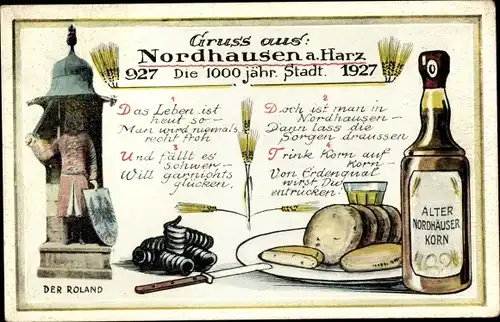 Gruss aus:
Nordhausen a. Harz
927 Die 1000 jähr. Stadt. 1927
1
Das Leben ist
heut so—
Man wird niemals
recht froh
3
Und fällt es
schwer—
Will garnichts
glücken.
2
Doch ist man in
Nordhausen—
Dann lass die
Sorgen draussen
4
Trink Korn auf
Korn—
Von Erdenqual
wirst Du
entrücken.
ALTER
NORDHÄUSER
KORN
DER ROLAND